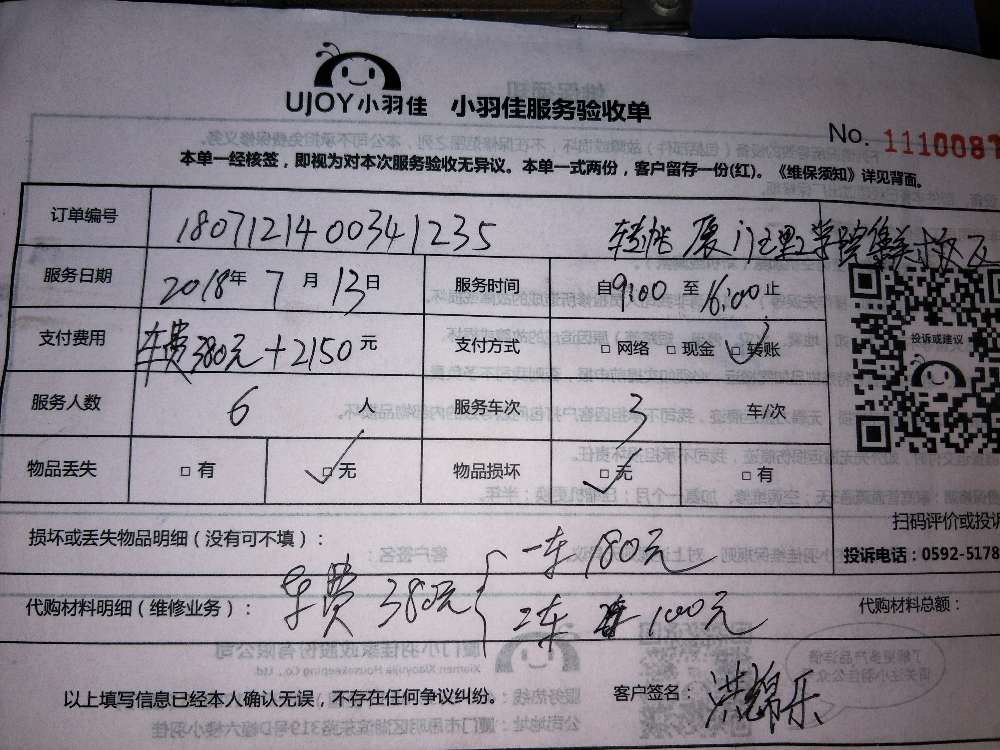 UJOY小羽佳 小羽佳服务验收单
No. 1110087
本单一经核签，即视为对本次服务验收无异议。本单一式两份，客户留存一份(红)。《维保须知》详见背面。
订单编号 1807121400341235 厦门理工学院集美校区
服务日期 2018年 7月 13日 服务时间 自9:00 至 16:00止
支付费用 车费380元+2150元 支付方式 □网络 □现金 □转账
投诉或建议
服务人数 6 人 服务车次 3 车/次
物品丢失 □有 □无 物品损坏 □无 □有
扫码评价或投诉
损坏或丢失物品明细（没有可不填）： 一车180元
投诉电话：0592-5178
代购材料明细（维修业务）： 车费380元 2车 100元 代购材料总额：
以上填写信息已经本人确认无误，不存在任何争议纠纷。 客户签名：洪锦乐